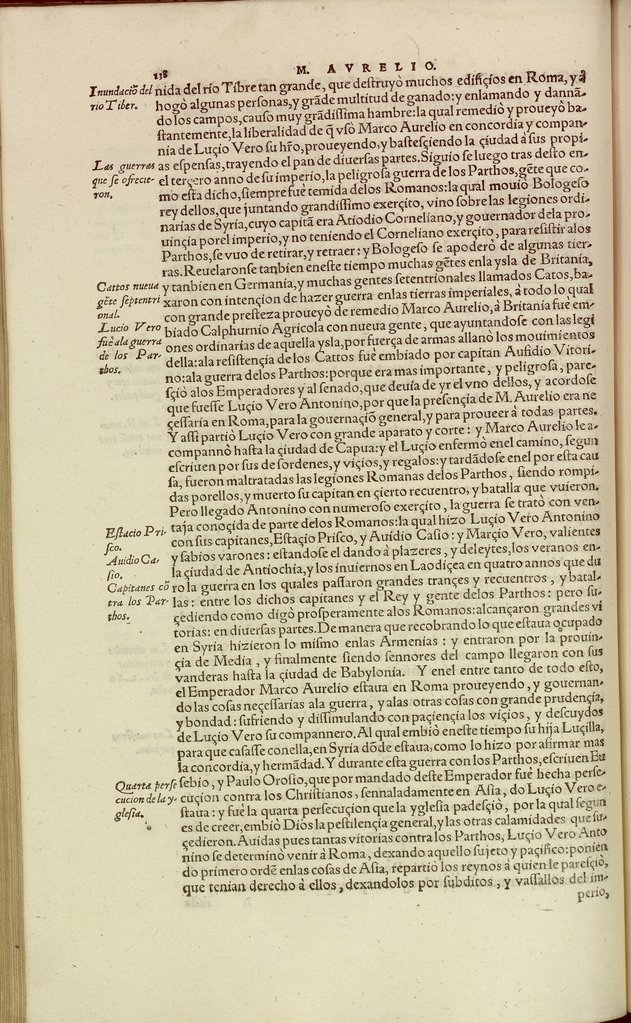 138
M. AVRELIO.
Inundaciõ del
rio Tiber.
nida del río Tíbre tan grande, que deſtruyò muchos edifiçíos en Roma, y a
hogò algunas perſonas, y grãde multítud de ganado: y enlamando y dannã
do los campos, cauſo muy grãdíſſima hambre: la qual remedíò y proueyò ba-
ſtantemente, la líberalídad de q̃ vſò Marco Aurelío en concordía y compan-
nía de Luçío Vero ſu hr̃o, proueyendo, y baſteſçíendo la çíudad à sus propí-
Las guerras
que ſe ofrecie-
ron.
as eſpenſas, trayendo el pan de díuerſas partes. Síguío ſe luego tras deſto en-
el terçero anno de ſu ímperío, la pelígroſa guerra de los Parthos, gẽte que co-
mo eſta dícho, ſíempre fuè temída delos Romanos: la qual mouíò Bologeſo
rey dellos, que juntando grandíſſímo exerçíto, víno ſobre las legíones ordí-
narías de Syría, cuyo capítã era Atíodío Cornelíano, y gouernador dela pro-
uínçía por el ímperío, y no teníendo el Cornelíano exerçíto, para reſíſtír alos
Parthos, ſe vuo de retírar, y retraer: y Bologeſo ſe apoderò de algunas tíer-
ras. Reuelaronſe tanbíen eneſte tíempo muchas gẽtes enla ysla de Brítanía,
Cattos nueua
gẽte ſeptentri
onal.
y tanbíen en Germanía, y muchas gentes ſetentríonales llamados Catos, ba-
xaron con íntençíon de hazer guerra enlas tíerras ímperíales, à todo lo qual
con grande preſteza proueyò de remedío Marco Aurelío, à Brítanía fuè em-
Lucio Vero
fuè ala guerra
de los Par-
thos.
bíado Calphurnío Agrícola con nueua gente, que ayuntandoſe con las legí
ones ordínarías de aquella ysla, por fuerça de armas allanò los mouímíentos
della: ala reſíſtençía de los Cattos fuè embíado por capítan Aufidío Vítorí-
no: ala guerra delos Parthos: porque era mas ímportante, y pelígroſa, pare-
ſçíò alos Emperadores y al ſenado, que deuía de yr el vno dellos, y acordoſe
que fueſſe Luçío Vero Antoníno, por que la preſençía de M. Aurelío era ne
çeſſaría en Roma, para la gouernaçíõ general, y para proueer à todas partes.
Y aſſí partíò Luçío Vero con grande aparato y corte: y Marco Aurelío le a-
compannò haſta la çíudad de Capua: y el Luçío enfermò enel camíno, ſegun
eſcríuen por ſus de ſordenes, y víçíos, y regalos: y tardãdoſe enel por eſta cau
ſa, fueron maltratadas las legíones Romanas delos Parthos, ſíendo rompí-
das porellos, y muerto ſu capítan en çíerto recuentro, y batalla que vuíeron.
Pero llegado Antoníno con numeroſo exerçíto, la guerra ſe tratò con ven-
taja conoçída de parte delos Romanos: la qual hízo Luçío Vero Antoníno
Eſtacio Pri-
ſco.
Auidio Ca-
ſio.
con ſus capítanes, Eſtaçío Príſco, y Auídío Caſío: y Marçío Vero, valíentes
y ſabíos varones: eſtandoſe el dando à plazeres, y deleytes, los veranos en-
la çíudad de Antíochía, y los ínuíernos en Laodíçea en quatro annos que du
Capitanes cõ
tra los Par-
thos.
ro la guerra en los quales paſſaron grandes trançes y recuentros, y batal-
las: entre los díchos capítanes y el Rey y gente delos Parthos: pero ſu-
çedíendo como dígò proſperamente alos Romanos: alcançaron grandes ví
torías: en díuerſas partes. De manera que recobrando lo que eſtaua ocupado
en Syría hízíeron lo míſmo enlas Armenías: y entraron por la prouín-
çía de Medía, y finalmente ſíendo ſennores del campo llegaron con sus
vanderas haſta la çíudad de Babylonía. Y enel entre tanto de todo eſto,
el Emperador Marco Aurelío eſtaua en Roma proueyendo, y gouernan-
do las coſas neçeſſarías ala guerra, y alas otras coſas con grande prudençía,
y bondad: sufríendo y díſſímulando con paçíençía los víçíos, y deſcuydos
de Luçío Vero ſu compannero. Al qual embíò eneſte tíempo ſu híja Luçílla,
para que caſaſſe conella, en Syría dõde eſtaua, como lo hízo por afirmar mas
la concordía, y hermãdad. Y durante eſta guerra con los Parthos, eſcríuen Eu
Quarta perſe
cucion de la y-
gleſia.
ſebío, y Paulo Oroſío, que por mandado deſte Emperador fuè hecha perſe-
cuçíon contra los Chríſtíanos, ſennaladamente en Aſía, do Luçío Vero e-
ſtaua: y fuè la quarta perſecuçíon que la ygleſía padeſçíò, por la qual ſegun
es de creer, embíò Díos la peſtílençía general, y las otras calamídades que ſu-
çedíeron. Auídas pues tantas vítorías contra los Parthos, Luçío Vero Anto
níno ſe determínò venír à Roma, dexando aquello ſujeto y paçífico: poníen
do prímero ordẽ enlas coſas de Aſía, repartíò los reynos à quíen le pareſçíò,
que tenían derecho à ellos, dexandolos por ſubdítos, y vaſſallos del ím-
perío,